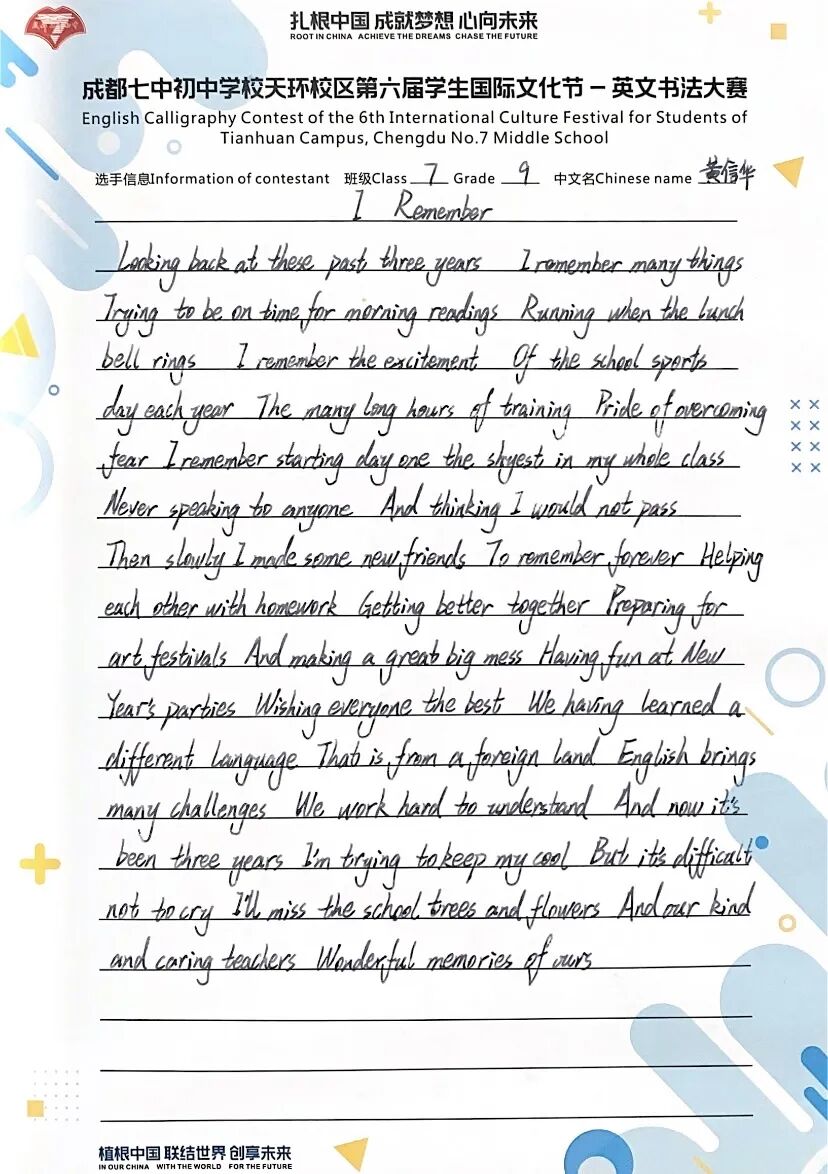 扎根中国 成就梦想 心向未来
ROOT IN CHINA ACHIEVE THE DREAMS CHASE THE FUTURE
成都七中初中学校天环校区第六届学生国际文化节－英文书法大赛
English Calligraphy Contest of the 6th International Culture Festival for Students of
Tianhuan Campus, Chengdu No.7 Middle School
选手信息Information of contestant 班级Class 7 Grade 9 中文名Chinese name 黄信华
I Remember
Looking back at these past three years I remember many things
Trying to be on time for morning readings Running when the lunch
bell rings I remember the excitement Of the school sports
day each year The many long hours of training Pride of overcoming
fear I remember starting day one the shyest in my whole class
Never speaking to anyone And thinking I would not pass
Then slowly I made some new friends To remember forever Helping
each other with homework Getting better together Preparing for
art festivals And making a great big mess Having fun at New
Year's parties Wishing everyone the best We having learned a
different language That is from a foreign land English brings
many challenges We work hard to understand And now it's
been three years I'm trying to keep my cool But it's difficult
not to cry I'll miss the school trees and flowers And our kind
and caring teachers Wonderful memories of ours
植根中国 联结世界 创享未来
IN OUR CHINA WITH THE WORLD FOR THE FUTURE